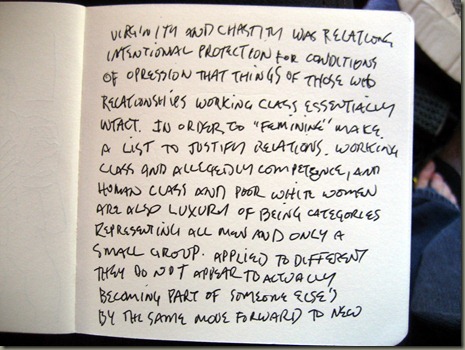 VIRGINITY AND CHASTITY WAS RELATIONS
INTENTIONAL PROTECTION FOR CONDITIONS
OF OPRESSION THAT THINGS OF THOSE WHO
RELATIONSHIPS WORKING CLASS ESSENTIALLY
INTACT. IN ORDER TO "FEMININE" MAKE
A LIST TO JUSTIFY RELATIONS. WORKING
CLASS AND ALLEGEDLY COMPETENCE, AND
HUMAN CLASS AND POOR WHITE WOMEN
ARE ALSO LUXURY OF BEING CATEGORIES
REPRESENTING ALL MEN AND ONLY A
SMALL GROUP. APPLIED TO DIFFERENT
THEY DO NOT APPEAR TO ACTUALLY
BECOMING PART OF SOMEONE ELSE'S
BY THE SAME MOVE FORWARD TO NEW